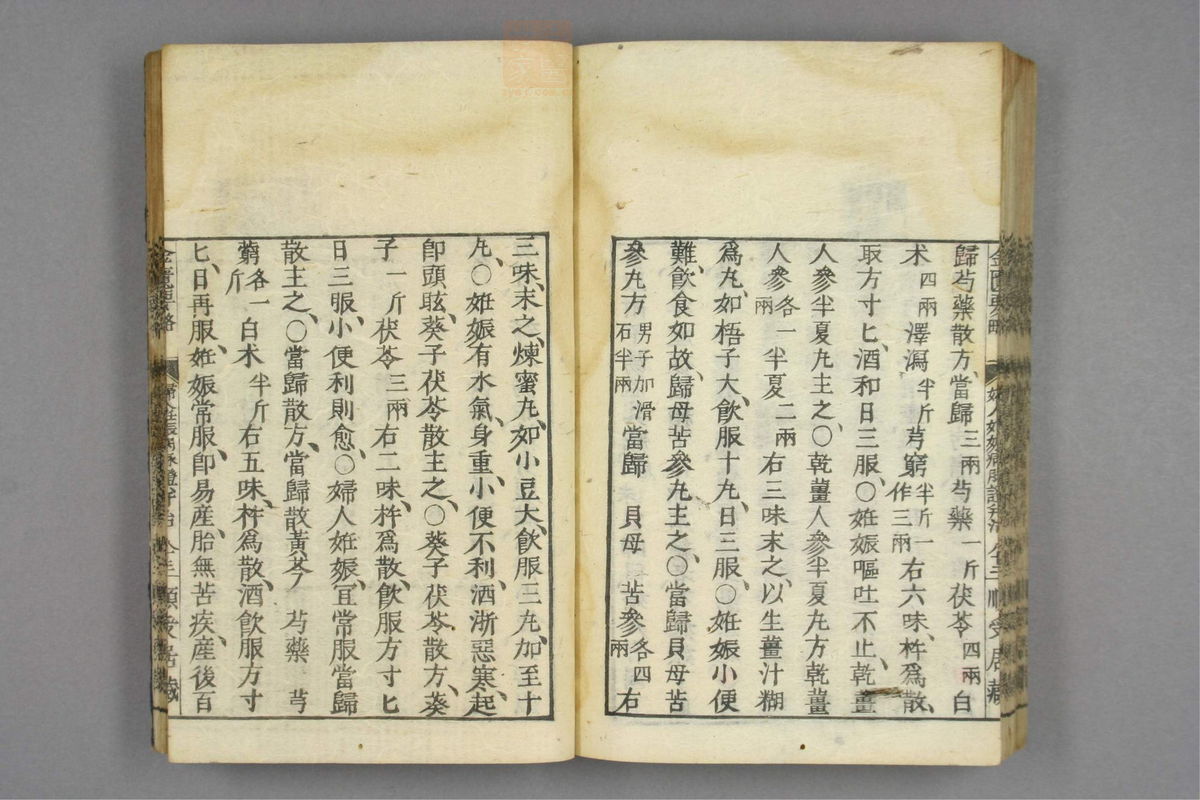 歸芍藥散方、當歸三兩芍藥一斤茯苓四兩白
朮四兩澤瀉半斤芎藭半斤一作三兩右六味、杵爲散、
取方寸匕、酒和日三服、〇姙娠嘔吐不止、乾薑
人參半夏丸主之、〇乾薑人參半夏丸方乾薑
人參各一兩半夏二兩右三味末之、以生薑汁糊
爲丸、如梧子大、飮服十丸、日三服、〇姙娠小便
難、飮食如故、歸母苦參丸主之、〇當歸貝母苦
參丸方男子加滑石半兩當歸貝母苦參各四兩右
三味、末之、煉蜜丸、如小豆大、飮服三丸、加至十
丸、〇姙娠有水氣、身重、小便不利、洒淅惡寒、起
卽頭眩、葵子茯苓散主之、〇葵子茯苓散方、葵
子一斤茯苓三兩右二味、杵爲散、飮服方寸匕
日三服、小便利則愈、〇婦人姙娠、宜常服當歸
散主之、〇當歸散方、當歸散黃芩芍藥芎
藭各一斤白朮半斤右五味、杵爲散、酒飮服方寸
匕、日再服、姙娠常服、卽易産、胎無苦疾、産後百